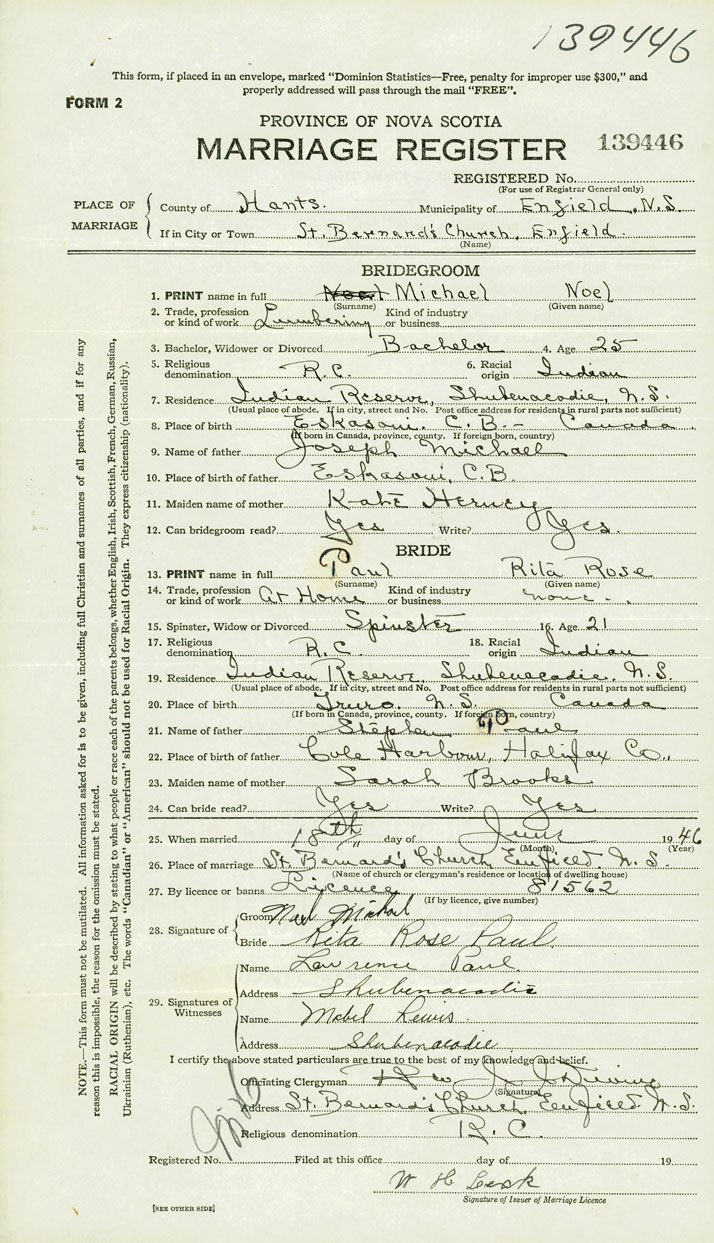 139446
This form, if placed in an envelope, marked “Dominion Statistics—Free, penalty for improper use $300,” and
properly addressed will pass through the mail “FREE”.
FORM 2
PROVINCE OF NOVA SCOTIA
MARRIAGE REGISTER 139446
REGISTERED No.
(For use of Registrar General only)
PLACE OF MARRIAGE
County of Hants. Municipality of Enfield, N.S.
If in City or Town St. Bernard's Church, Enfield.
(Name)
BRIDEGROOM
1. PRINT name in full Noel Michael Noel
(Surname) (Given name)
2. Trade, profession or kind of work Lumbering Kind of industry or business
3. Bachelor, Widower or Divorced Bachelor 4. Age 25
5. Religious denomination R.C. 6. Racial origin Indian
7. Residence Indian Reserve, Shubenacadie, N.S.
(Usual place of abode. If in city, street and No. Post office address for residents in rural parts not sufficient)
8. Place of birth Eskasoni, C.B. - Canada
(If born in Canada, province, county. If foreign born, country)
9. Name of father Joseph Michael
10. Place of birth of father Eskasoni, C.B.
11. Maiden name of mother Kate Herney
12. Can bridegroom read? Yes Write? Yes.
BRIDE
13. PRINT name in full Paul Rita Rose
(Surname) (Given name)
14. Trade, profession or kind of work At Home Kind of industry or business none.
15. Spinster, Widow or Divorced Spinster 16. Age 21
17. Religious denomination R.C. 18. Racial origin Indian
19. Residence Indian Reserve, Shubenacadie, N.S.
(Usual place of abode. If in city, street and No. Post office address for residents in rural parts not sufficient)
20. Place of birth Truro. N.S. Canada
(If born in Canada, province, county. If foreign born, country)
21. Name of father Stephen Paul
22. Place of birth of father Cole Harbour, Halifax Co.,
23. Maiden name of mother Sarah Brooks
24. Can bride read? Yes Write? Yes
25. When married 18th day of June 1946
(Month) (Year)
26. Place of marriage St. Bernard's Church Enfield N.S.
(Name of church or clergyman's residence or location of dwelling house)
27. By licence or banns Lycence 81562
(If by licence, give number)
28. Signature of
Groom Noel Michael
Bride Rita Rose Paul
29. Signatures of Witnesses
Name Lawrence Paul.
Address Shubenacadie
Name Mabel Lewis.
Address Shubenacadie
I certify the above stated particulars are true to the best of my knowledge and belief.
Officiating Clergyman Rev J.
(Signature)
Address St. Bernard's Church, Enfield N.S.
Religious denomination R.C.
Registered No. Filed at this office day of 19
W H
Signature of Issuer of Marriage Licence
[SEE OTHER SIDE]
NOTE.—This form must not be mutilated. All information asked for is to be given, including full Christian and surnames of all parties, and if for any
reason this is impossible, the reason for the omission must be stated.
RACIAL ORIGIN will be described by stating to what people or race each of the parents belongs, whether English, Irish, Scottish, French, German, Russian,
Ukrainian (Ruthenian), etc. The words “Canadian” or “American” should not be used for Racial Origin. They express citizenship (nationality).